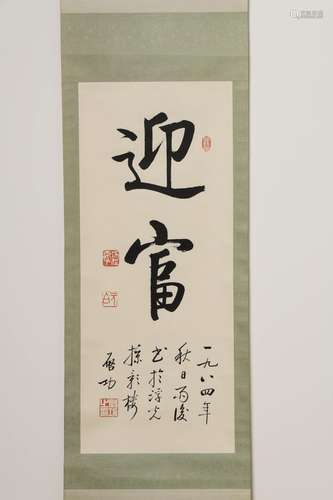 迎富
一九八四年
秋日雨后
书于浮光
掠影楼
启功